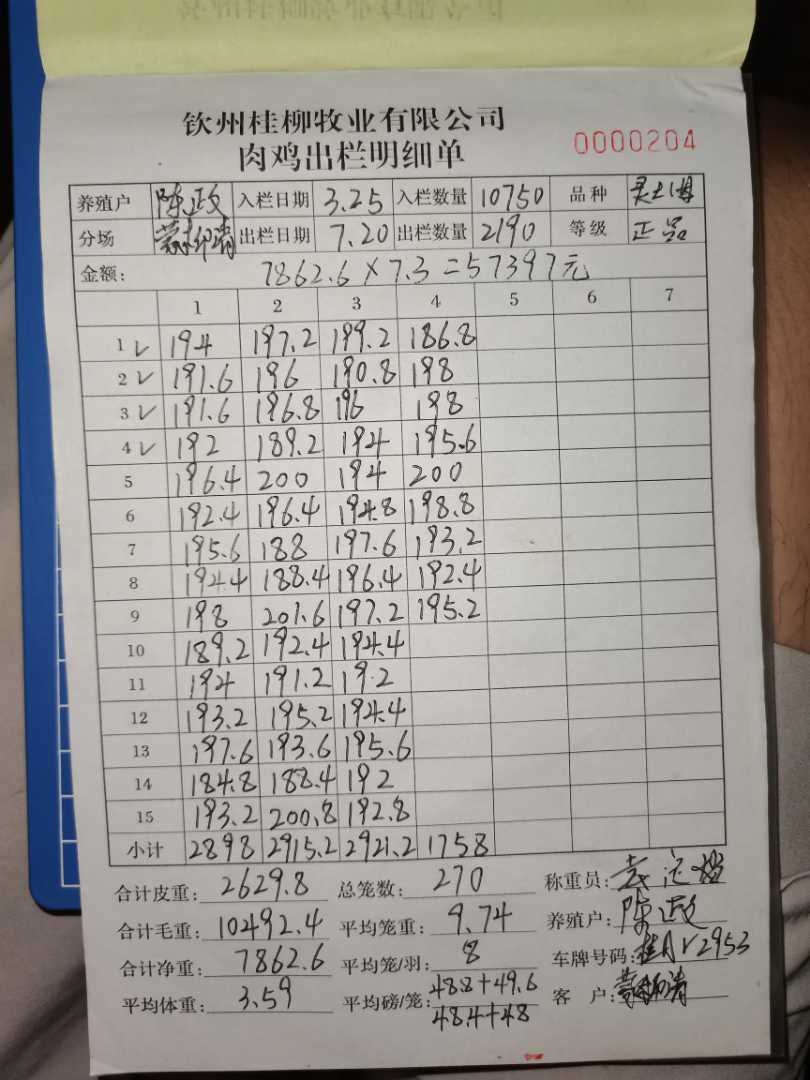 钦州桂柳牧业有限公司
肉鸡出栏明细单 0000204
养殖户 陈政 入栏日期 3.25 入栏数量 10750 品种 灵土
分场 出栏日期 7.20 出栏数量 2190 等级 正品
金额: 7862.6×7.3=57397元
1 2 3 4 5 6 7
1 ✓ 194 197.2 199.2 186.8
2 ✓ 191.6 196 190.8 198
3 ✓ 191.6 196.8 196 198
4 ✓ 192 189.2 194 195.6
5 196.4 200 194 200
6 192.4 196.4 194.8 198.8
7 195.6 188 197.6 193.2
8 194.4 188.4 196.4 192.4
9 198 201.6 197.2 195.2
10 189.2 192.4 194.4
11 194 191.2 19.2
12 193.2 195.2 194.4
13 197.6 193.6 195.6
14 184.8 188.4 192
15 193.2 200.8 192.8
小计 2898 2915.2 2921.2 1758
合计皮重: 2629.8 总笼数: 270 称重员:
合计毛重: 10492.4 平均笼重: 9.74 养殖户: 陈政
合计净重: 7862.6 平均笼/羽: 8 车牌号码: 桂AV2953
平均体重: 3.59 平均磅/笼: 48.8+49.6 客 户:
48.4+48